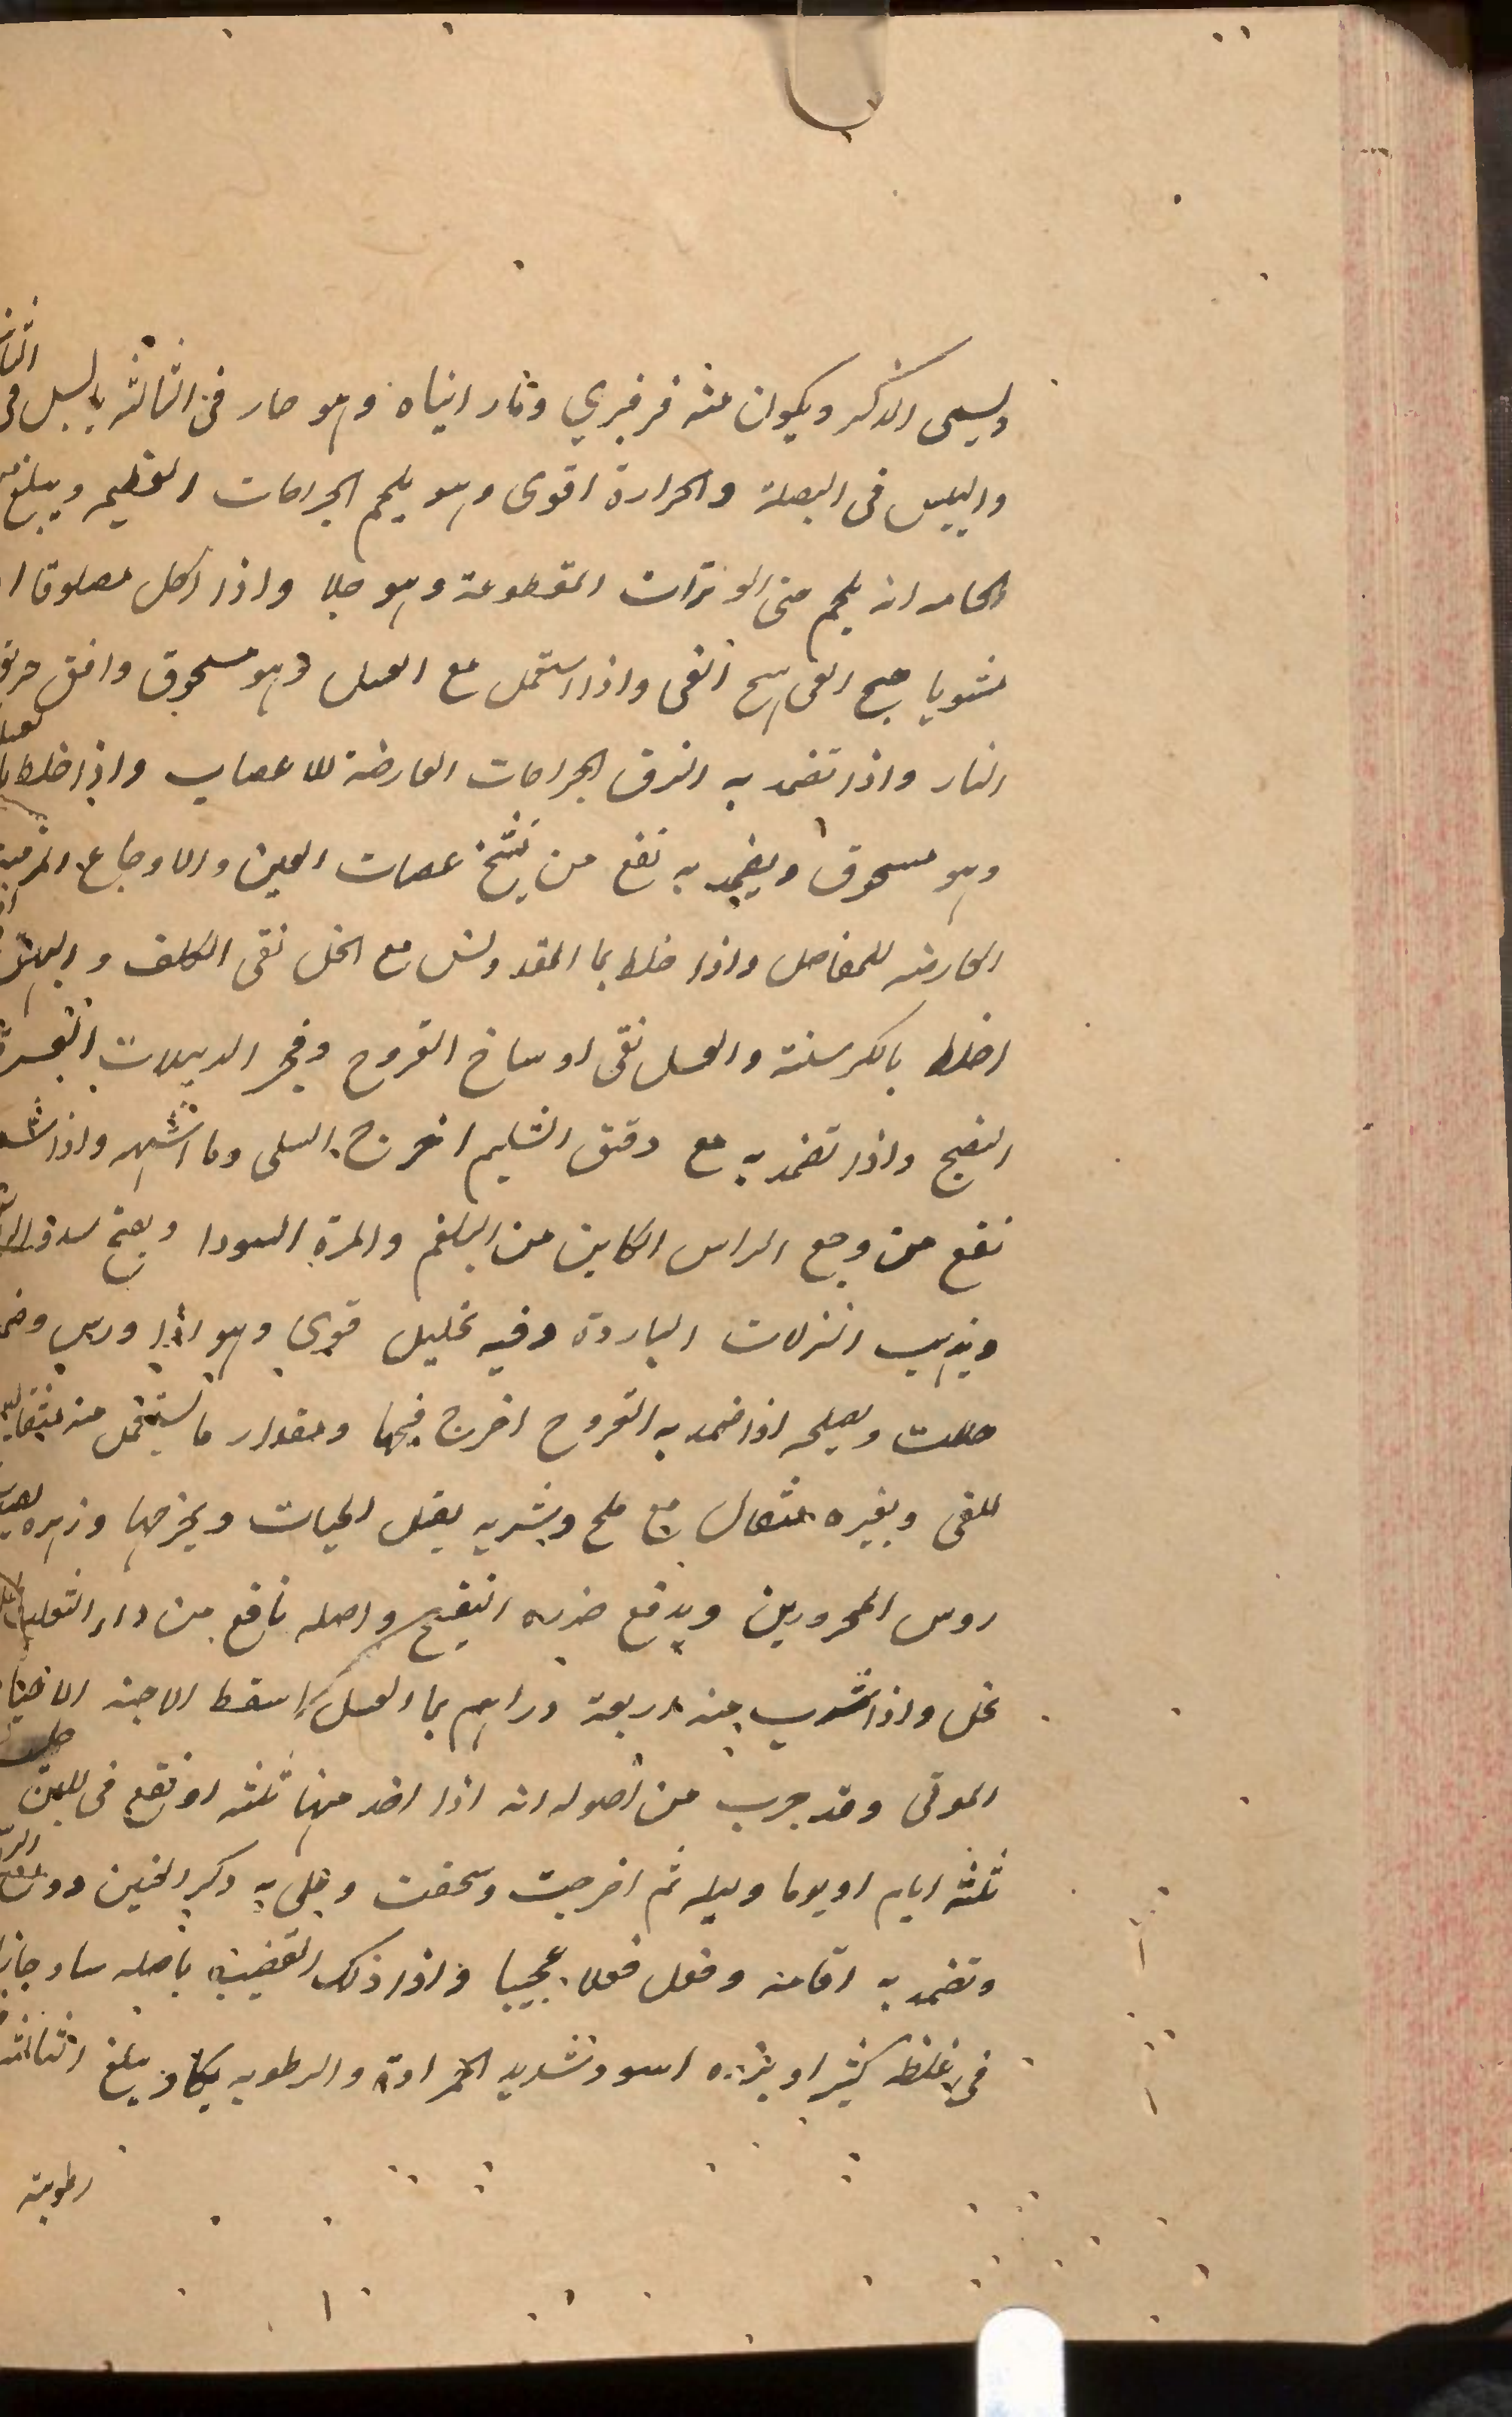 ويسمى الذكر ويكون منه فرفيري وثار انياه وهو حار في الثالثه يابس في الثا
واليبس في البصلة والحرارة اقوى وهو يلحم الجراحات العظيمه ويبلغ من
الحامه انه يلحم متى الوترات المقطوعة وهو جلا واذا اكل مصلوقا ا
مشويا هيج القى واذا استعمل مع العسل وهو مسحوق وافق حرق
النار واذا تضمد به الزق الجراحات العارضة للاعصاب واذا خلط بالعسل
وهو مسحوق ويضمد به نفع من نتنخ عصات العين والاوجاع المزمنة
العارضه للمفاصل واذا خلط بما المقدولس مع الخل نقى الكلف والبهق
اخلط بالكرسنة والعسل نقى اوساخ القروح وفجر الدبيلات العسرة
النضج واذا تضمد به مع دقيق الشيلم اخرج السلى وما اشبهه واذا شم
نفع من وجع الراس الكاين من البلغم والمرة السودا ويفتح سدد الد
ويذهب النزلات الباردة وفيه تحليل قوى وهو اذا ورس وضم
حللت ويصلحه اذا ضمد به القروح اخرج فيحها ومقدار ما يستعمل منه مثقال
للقى وبغيره مثقال مع ملح ويشربه يقتل الحيات ويخرجها وزهره يصدع
روس المحرورين ويدفع ضرره البنفسج واصله نافع من داء الثعلب
بخل واذا شرب منه اربعة دراهم بما العسل اسقط الاجنه الاحيا
الموتى وقد جرب من اصوله انه اذا اخذ منها ثلثه او نقع في اللبن حليب
ثلثه ايام او يوما وليله ثم اخرجت وسحقت وطلى به ذكر العنين دون الر
وتضمد به اقامه وفعل فعلا عجيبا واذا دلك القضيب باصله ساد جازا
في غلظه كثيرا وبزره اسود شديد الحرارة والرطوبه يكاد يبلغ الثالثه
رطوبته